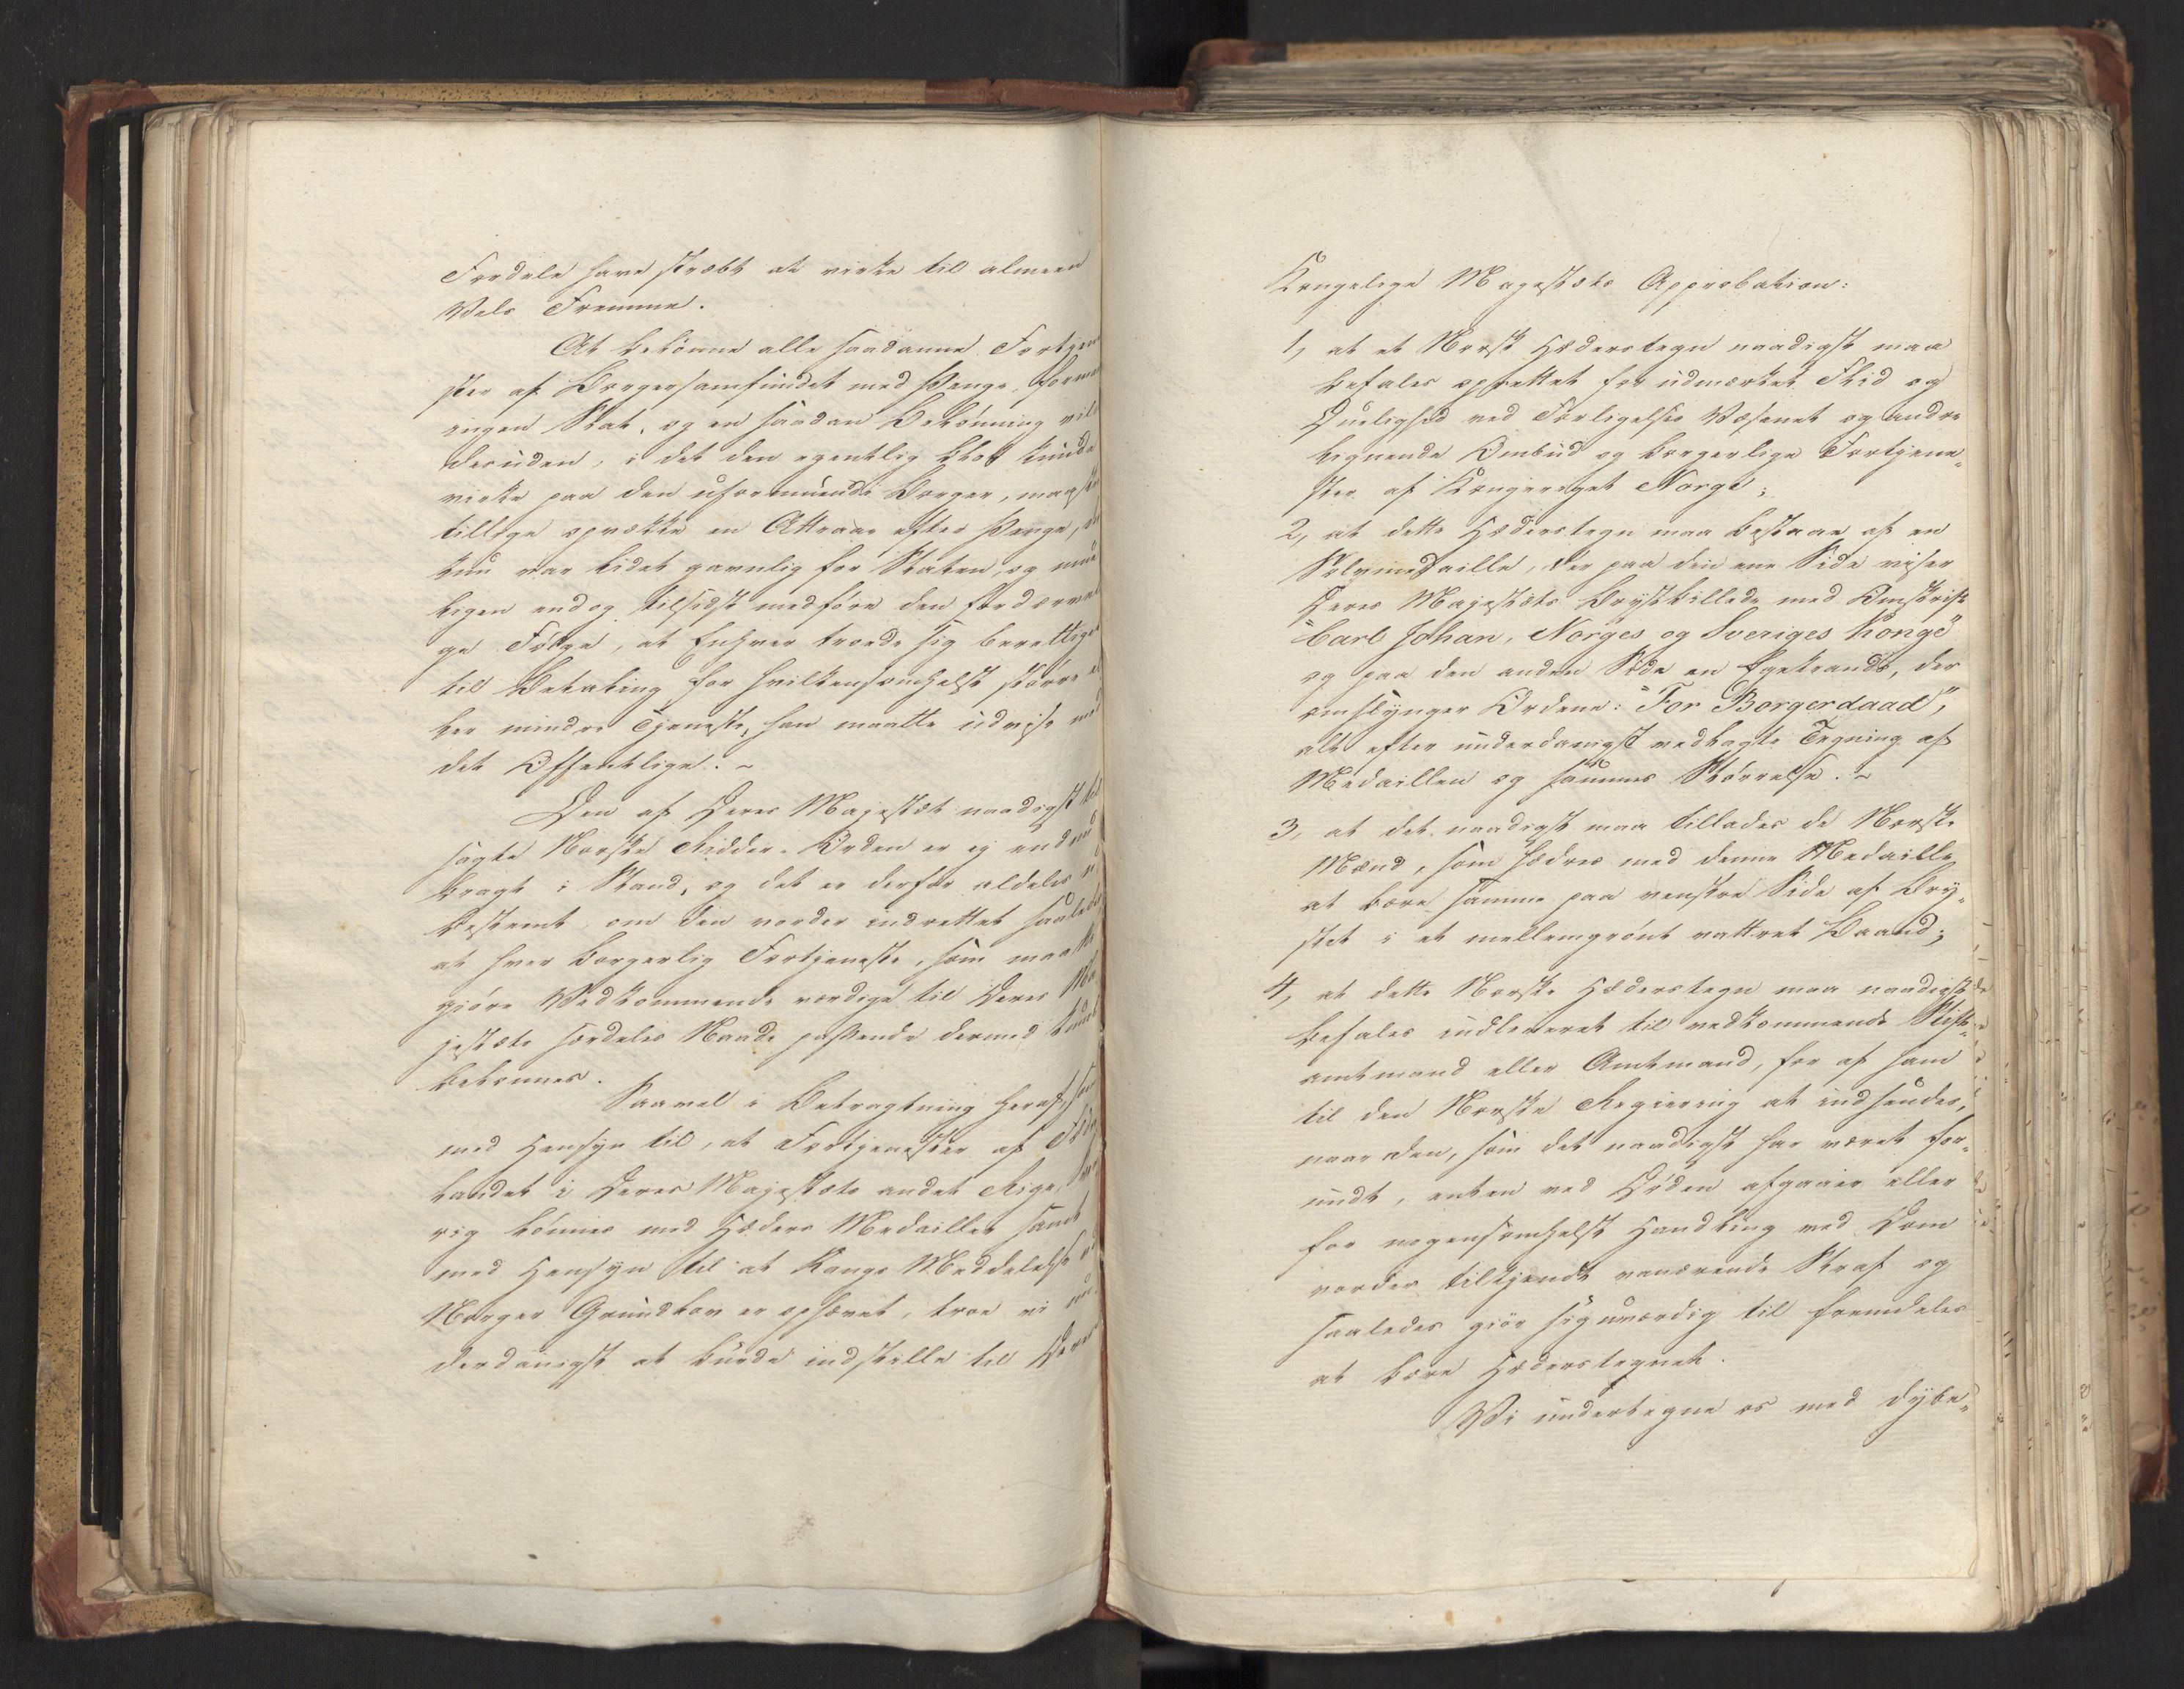 Fordele have stræbt at virke til almeen
Vels Fremme.
At belönne alle saadanne Fortjene
ster af Borgersamfundet med Penge, formaaer
ingen Stat, og en saadan Belönning vilde
desuden, i det den egentlig blot kunde
virke paa den uformuende Borger, maaskee
tillige opvække en Attraae efter Penge, der
kun var lidet gavnlig for Staten, og mue
ligen endog tilsidst medföre den fordærveli
ge Fölge, at Enhver troede sig berettiget
til Betaling for hvilkensomhelst större el
ler mindre Tjeneste, han maatte udvise mod
det Offentlige. ~
Den af Deres Majestæt naadigst til
sagte Norske Ridder-Orden er ej endnu
bragt i Stand, og det er derfor aldeles u
bestemt, om den vorder indrettet saaledes
at hver borgerlig Fortjeneste, som maatte
gjöre Vedkommende værdige til Deres Ma
jestæts særdeles Naade passende dermed kunde
belönnes.
Saavel i Betragtning heraf, som
med Hensyn til, at Fortjenester af Fædre
landet i Deres Majestæts andet Rige,
rig lönnes med Hæders Medailler samt
med Hensyn til at Rangs Meddelelse ved
Norges Grundlov er ophævet, troe vi un
derdanigst at burde indstille til Deres
Kongelige Majestæts Approbation:
1, at et Norsk Hæderstegn naadigst maa
befales oprettet for udmærket Flid og
Duelighed ved Forligelses Væsenet og andre
lignende Ombud og borgerlige Fortjene„
ster af Kongeriget Norge;
2, at dette Hæderstegn maa bestaae af en
Sølvmedaille, der paa den ene Side viser
Deres Majestæts Brystbillede med Omskrift
"Carl Johan, Norges og Sveriges Konge"
og paa den anden Side en Egekrands, der
omslynger Ordene: "For Borgerdaad",
alt efter underdanigst vedlagte Tegning af
Medaillen og sammes Störrelse. ~
3, at det naadigst maa tillades de Norske
Mænd, som hædres med denne Medaille
at bære samme paa venstre Side af Bry„
stet i et mellemgrönt vattret Baand;
4, at dette Norske Hæderstegn maa naadigst
befales indleveret til vedkommende Stift„
amtmand eller Amtmand, for af ham
til den Norske Regjering at indsendes,
naar den, som det naadigst har været for„
undt, enten ved Döden afgaaer eller
for nogensomhelst Handling ved Dom
vorder tilkjendt vanærende Straf og
saaledes giör sig uværdig til fremdeles
at bære Hæderstegnet.
Vi undertegne os med dybe„